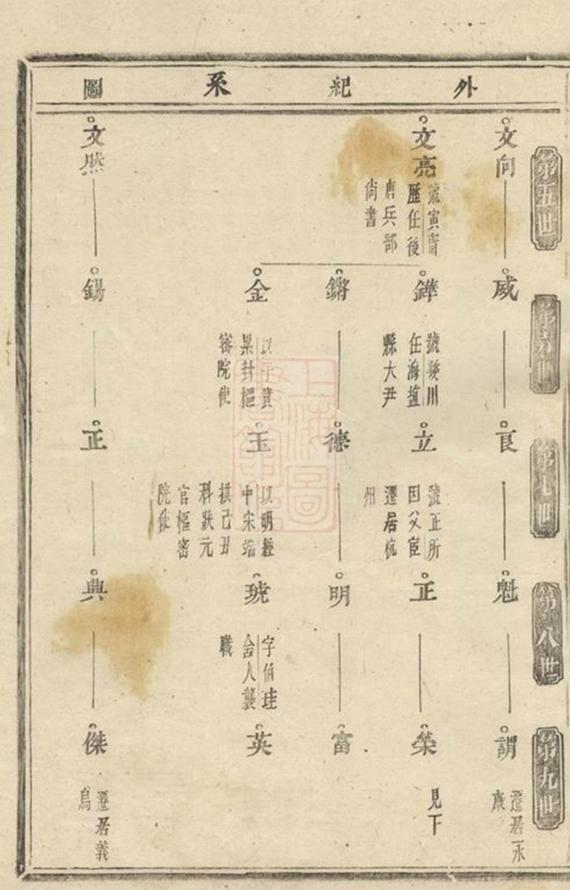 外紀系圖
第五世
第六世
第七世
第八世
第九世
文向
威
良
魁
謂
遷居永
康
文亮
號寅齋
歷任後
唐兵部
尚書
鏵
號駿川
任海鹽
縣大尹
立
號正所
因父宦
遷居杭
州
正
榮
見下
鏘
德
明
富
金
以子貴
累封樞
密院使
玉
以明經
中宋端
拱己丑
科狀元
官樞密
院使
琥
字伯珪
舍人襲
職
英
文煕
錫
正
典
傑
遷居義
烏